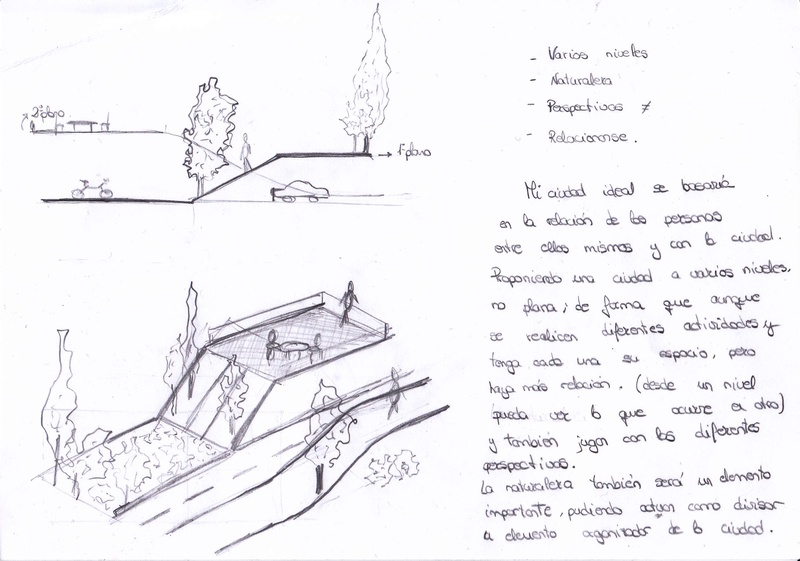 2º plano
→ 1º plano
- Varios niveles
- Naturaleza
- Perspectivas ≠
- Relacionarse.
Mi ciudad ideal se basaría
en la relación de las personas
entre ellas mismas y con la ciudad.
Proponiendo una ciudad a varios niveles,
no plana; de forma que aunque
se realicen diferentes actividades y
tenga cada una su espacio, pero
haya más relación. (desde un nivel
pueda ver lo que ocurre el otro)
y también jugar con las diferentes
perspectivas.
La naturaleza también será un elemento
importante, pudiendo actuar como divisor
o elemento organizador de la ciudad.